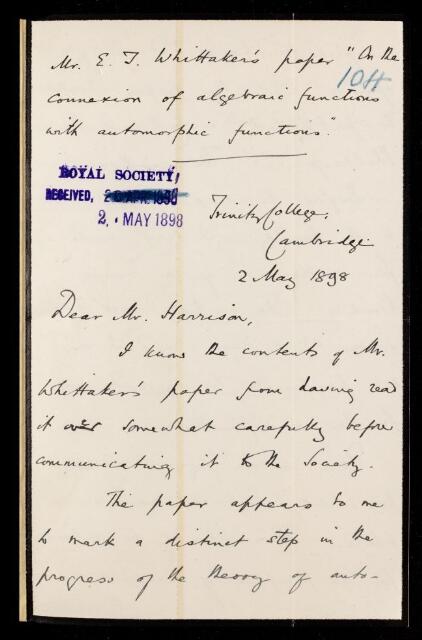 Mr. E. T. Whittaker's paper "On the
104
connexion of algebraic functions
with automorphic functions".
ROYAL SOCIETY,
RECEIVED, 26 APR. 1898
2, MAY 1898
Trinity College,
Cambridge
2 May 1898
Dear Mr. Harrison,
I know the contents of Mr.
Whittaker's paper from having read
it over somewhat carefully before
communicating it to the Society.
The paper appears to me
to mark a distinct step in the
progress of the theory of auto-